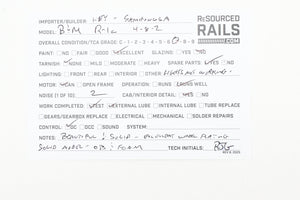 IMPORTER/BUILDER: KEY - SAMHONGSA
MODEL: B&M R-1c 4-8-2
RESOURCED
RAILS
.COM
OVERALL CONDITION/TCA GRADE C-1-2-3-4-5-6-7-8-9-10
PAINT: NO FAIR GOOD EXCELLENT GLAZING YES NO
TARNISH: NONE MILD MODERATE HEAVY SPARE PARTS YES NO
LIGHTING FRONT REAR INTERIOR OTHER
MOTOR: CAN OPEN FRAME OPERATION: RUNS RUNS WELL
NOISE (1 OF 10) 2 CAB/INTERIOR DETAIL YES NO
WORK COMPLETED TEST EXTERNAL LUBE INTERNAL LUBE TUBE REPLACE
GEARS/GEARBOX REPLACE ELECTRICAL MECHANICAL SOLDER REPAIRS
CONTROL DC DCC SOUND SYSTEM
NOTES: BEAUTIFUL & SOLID -
SOLID MODEL - OB & FOAM
TECH INITIALS: